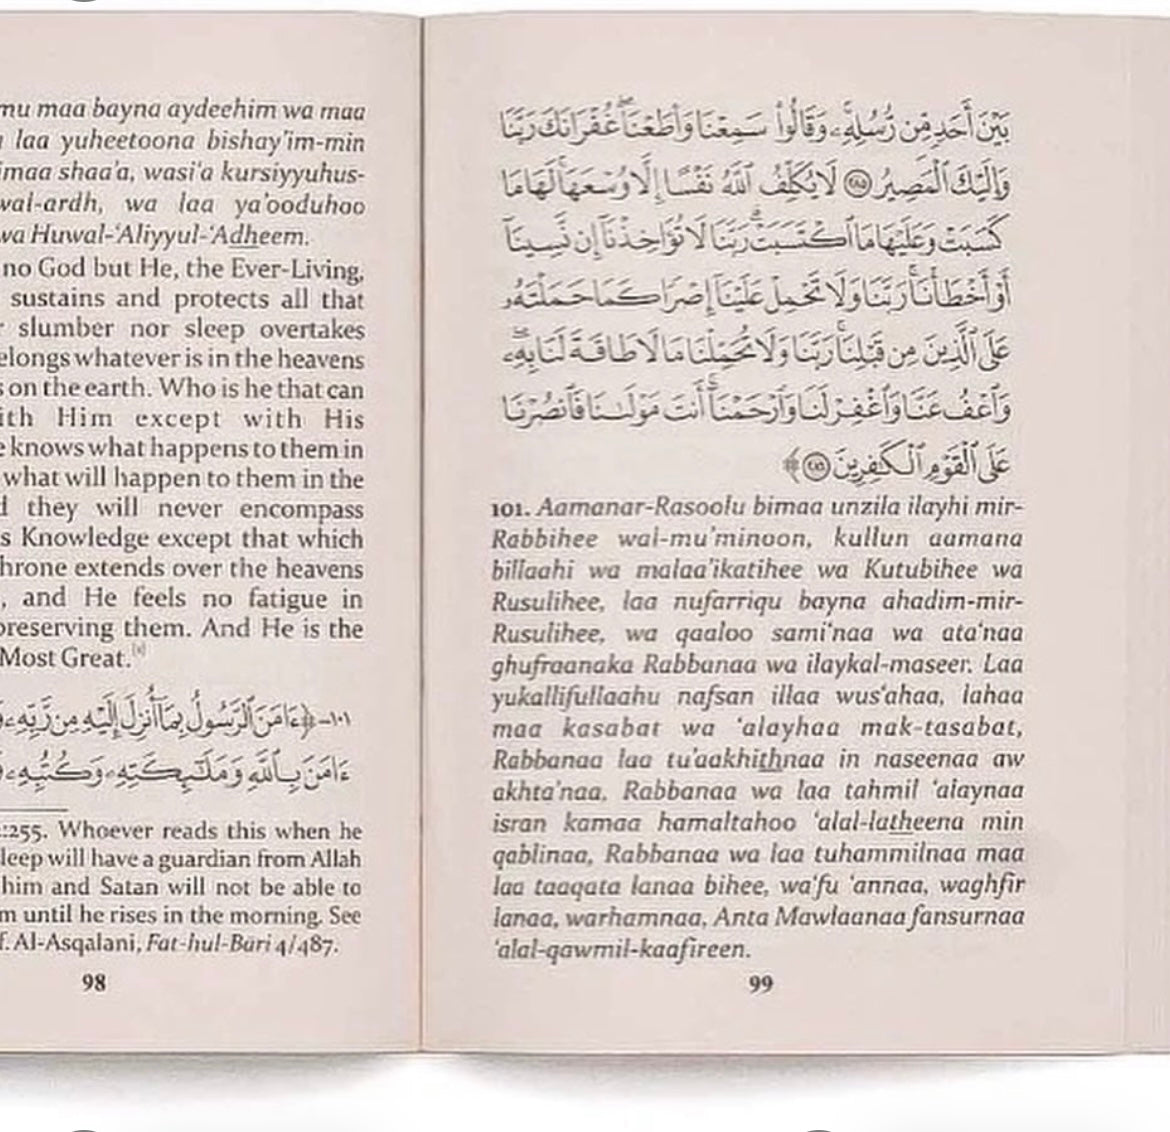 mu maa bayna aydeehim wa maa
laa yuheetoona bishay'im-min
imaa shaa'a, wasi'a kursiyyuhus-
wal-ardh, wa laa ya'ooduhoo
wa Huwal-'Aliyyul-'Adheem.
no God but He, the Ever-Living,
sustains and protects all that
slumber nor sleep overtakes
elongs whatever is in the heavens
s on the earth. Who is he that can
ith Him except with His
e knows what happens to them in
what will happen to them in the
d they will never encompass
s Knowledge except that which
hrone extends over the heavens
, and He feels no fatigue in
preserving them. And He is the
Most Great.
١٠١- ﴿ءَامَنَ ٱلرَّسُولُ بِمَآ أُنزِلَ إِلَيْهِ مِن رَّبِّهِۦ
ءَامَنَ بِٱللَّهِ وَمَلَٰٓئِكَتِهِۦ وَكُتُبِهِۦ
:255. Whoever reads this when he
leep will have a guardian from Allah
him and Satan will not be able to
m until he rises in the morning. See
f. Al-Asqalani, Fat-hul-Bari 4/487.
98
بَيْنَ أَحَدٍ مِّن رُّسُلِهِۦۚ وَقَالُوا۟ سَمِعْنَا وَأَطَعْنَاۖ غُفْرَانَكَ رَبَّنَا
وَإِلَيْكَ ٱلْمَصِيرُ ٢٨٥ لَا يُكَلِّفُ ٱللَّهُ نَفْسًا إِلَّا وُسْعَهَاۚ لَهَا مَا
كَسَبَتْ وَعَلَيْهَا مَا ٱكْتَسَبَتْۗ رَبَّنَا لَا تُؤَاخِذْنَآ إِن نَّسِينَآ
أَوْ أَخْطَأْنَاۚ رَبَّنَا وَلَا تَحْمِلْ عَلَيْنَآ إِصْرًا كَمَا حَمَلْتَهُۥ
عَلَى ٱلَّذِينَ مِن قَبْلِنَاۚ رَبَّنَا وَلَا تُحَمِّلْنَا مَا لَا طَاقَةَ لَنَا بِهِۦۖ
وَٱعْفُ عَنَّا وَٱغْفِرْ لَنَا وَٱرْحَمْنَآۚ أَنتَ مَوْلَىٰنَا فَٱنصُرْنَا
عَلَى ٱلْقَوْمِ ٱلْكَٰفِرِينَ ٢٨٦﴾
101. Aamanar-Rasoolu bimaa unzila ilayhi mir-
Rabbihee wal-mu'minoon, kullun aamana
billaahi wa malaa'ikatihee wa Kutubihee wa
Rusulihee, laa nufarriqu bayna ahadim-mir-
Rusulihee, wa qaaloo sami'naa wa ata'naa
ghufraanaka Rabbanaa wa ilaykal-maseer. Laa
yukallifullaahu nafsan illaa wus'ahaa, lahaa
maa kasabat wa 'alayhaa mak-tasabat,
Rabbanaa laa tu'aakhithnaa in naseenaa aw
akhta'naa, Rabbanaa wa laa tahmil 'alaynaa
isran kamaa hamaltahoo 'alal-latheena min
qablinaa, Rabbanaa wa laa tuhammilnaa maa
laa taaqata lanaa bihee, wa'fu 'annaa, waghfir
lanaa, warhamnaa, Anta Mawlaanaa fansurnaa
'alal-qawmil-kaafireen.
99